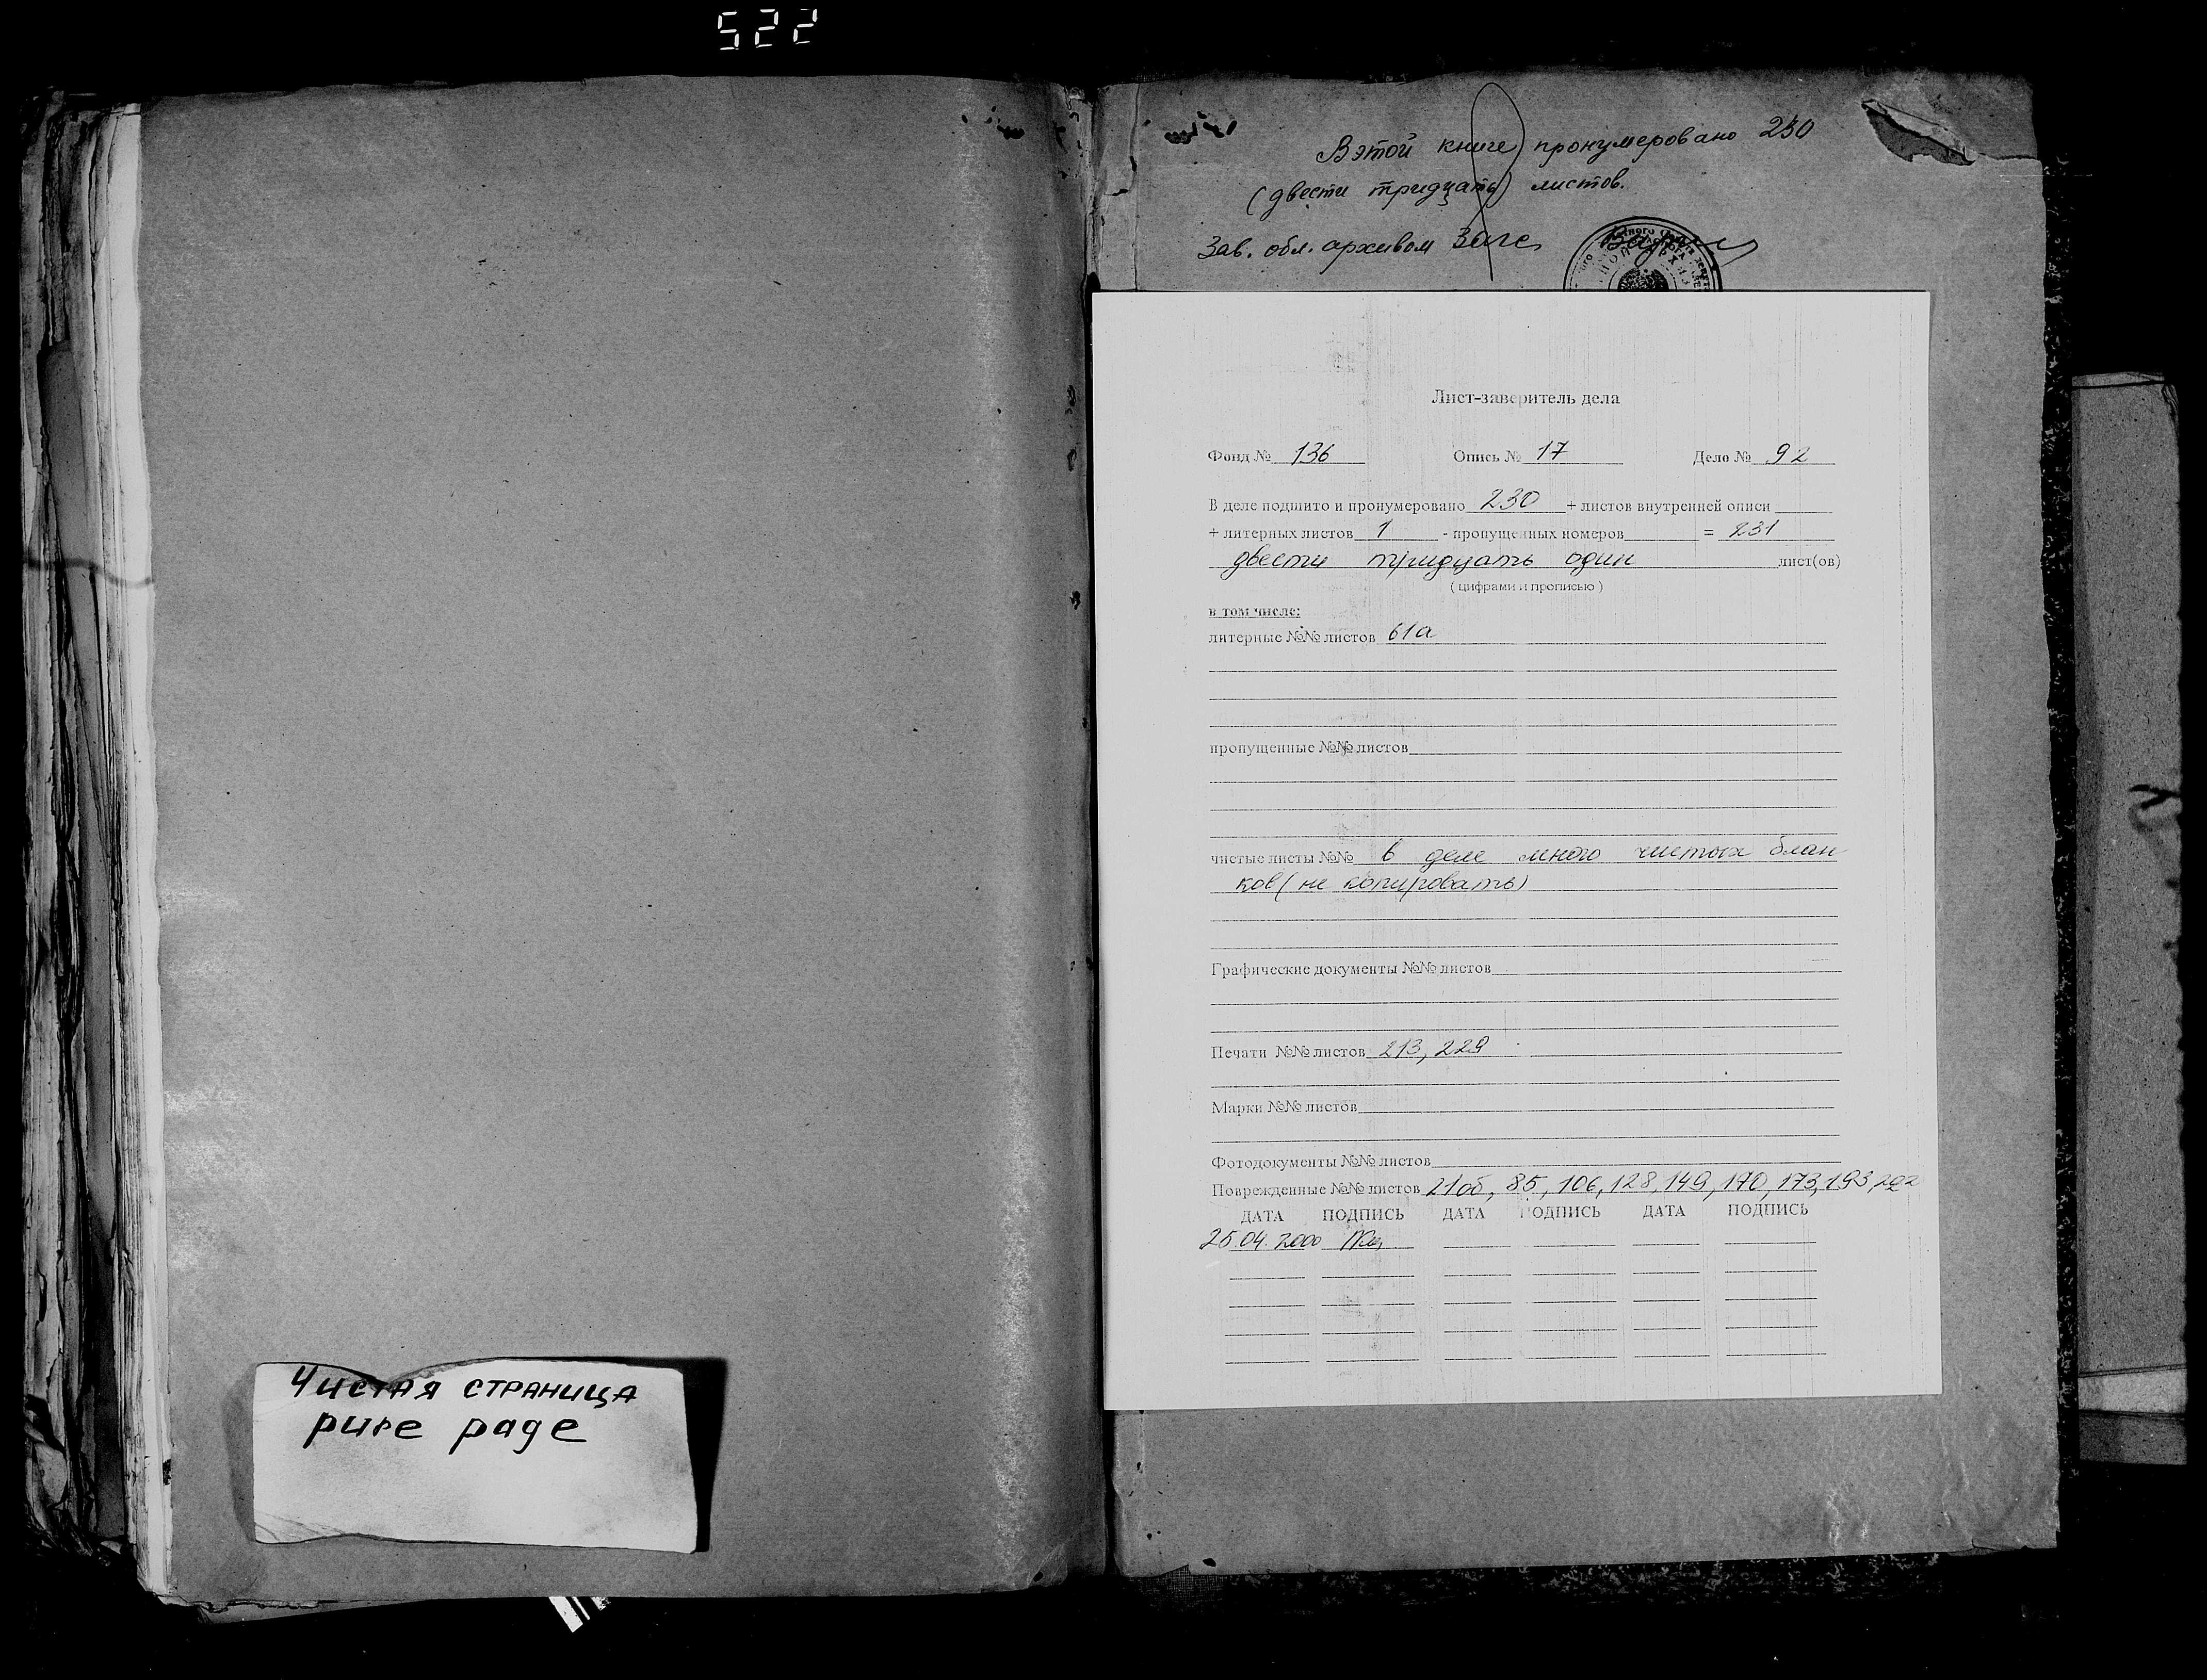 522
В этой книге пронумеровано 230
(двести тридцать) листов.
Зав. обл. архивом Загс
Лист-заверитель дела
Фонд № 136 Опись № 17 Дело № 92
В деле подшито и пронумеровано 230 + листов внутренней описи
+ литерных листов 1 - пропущенных номеров = 231
двести тридцать один лист(ов)
( цифрами и прописью )
в том числе:
литерные №№ листов 61а
пропущенные №№ листов
чистые листы №№ в деле много чистых блан
ков (не копировать)
Графические документы №№ листов
Печати №№ листов 213, 229
Марки №№ листов
Фотодокументы №№ листов
Поврежденные №№ листов 21об, 85, 106, 128, 149, 170, 173, 193, 202
ДАТА ПОДПИСЬ ДАТА ПОДПИСЬ ДАТА ПОДПИСЬ
25.04.2000
Чистая страница
pure page